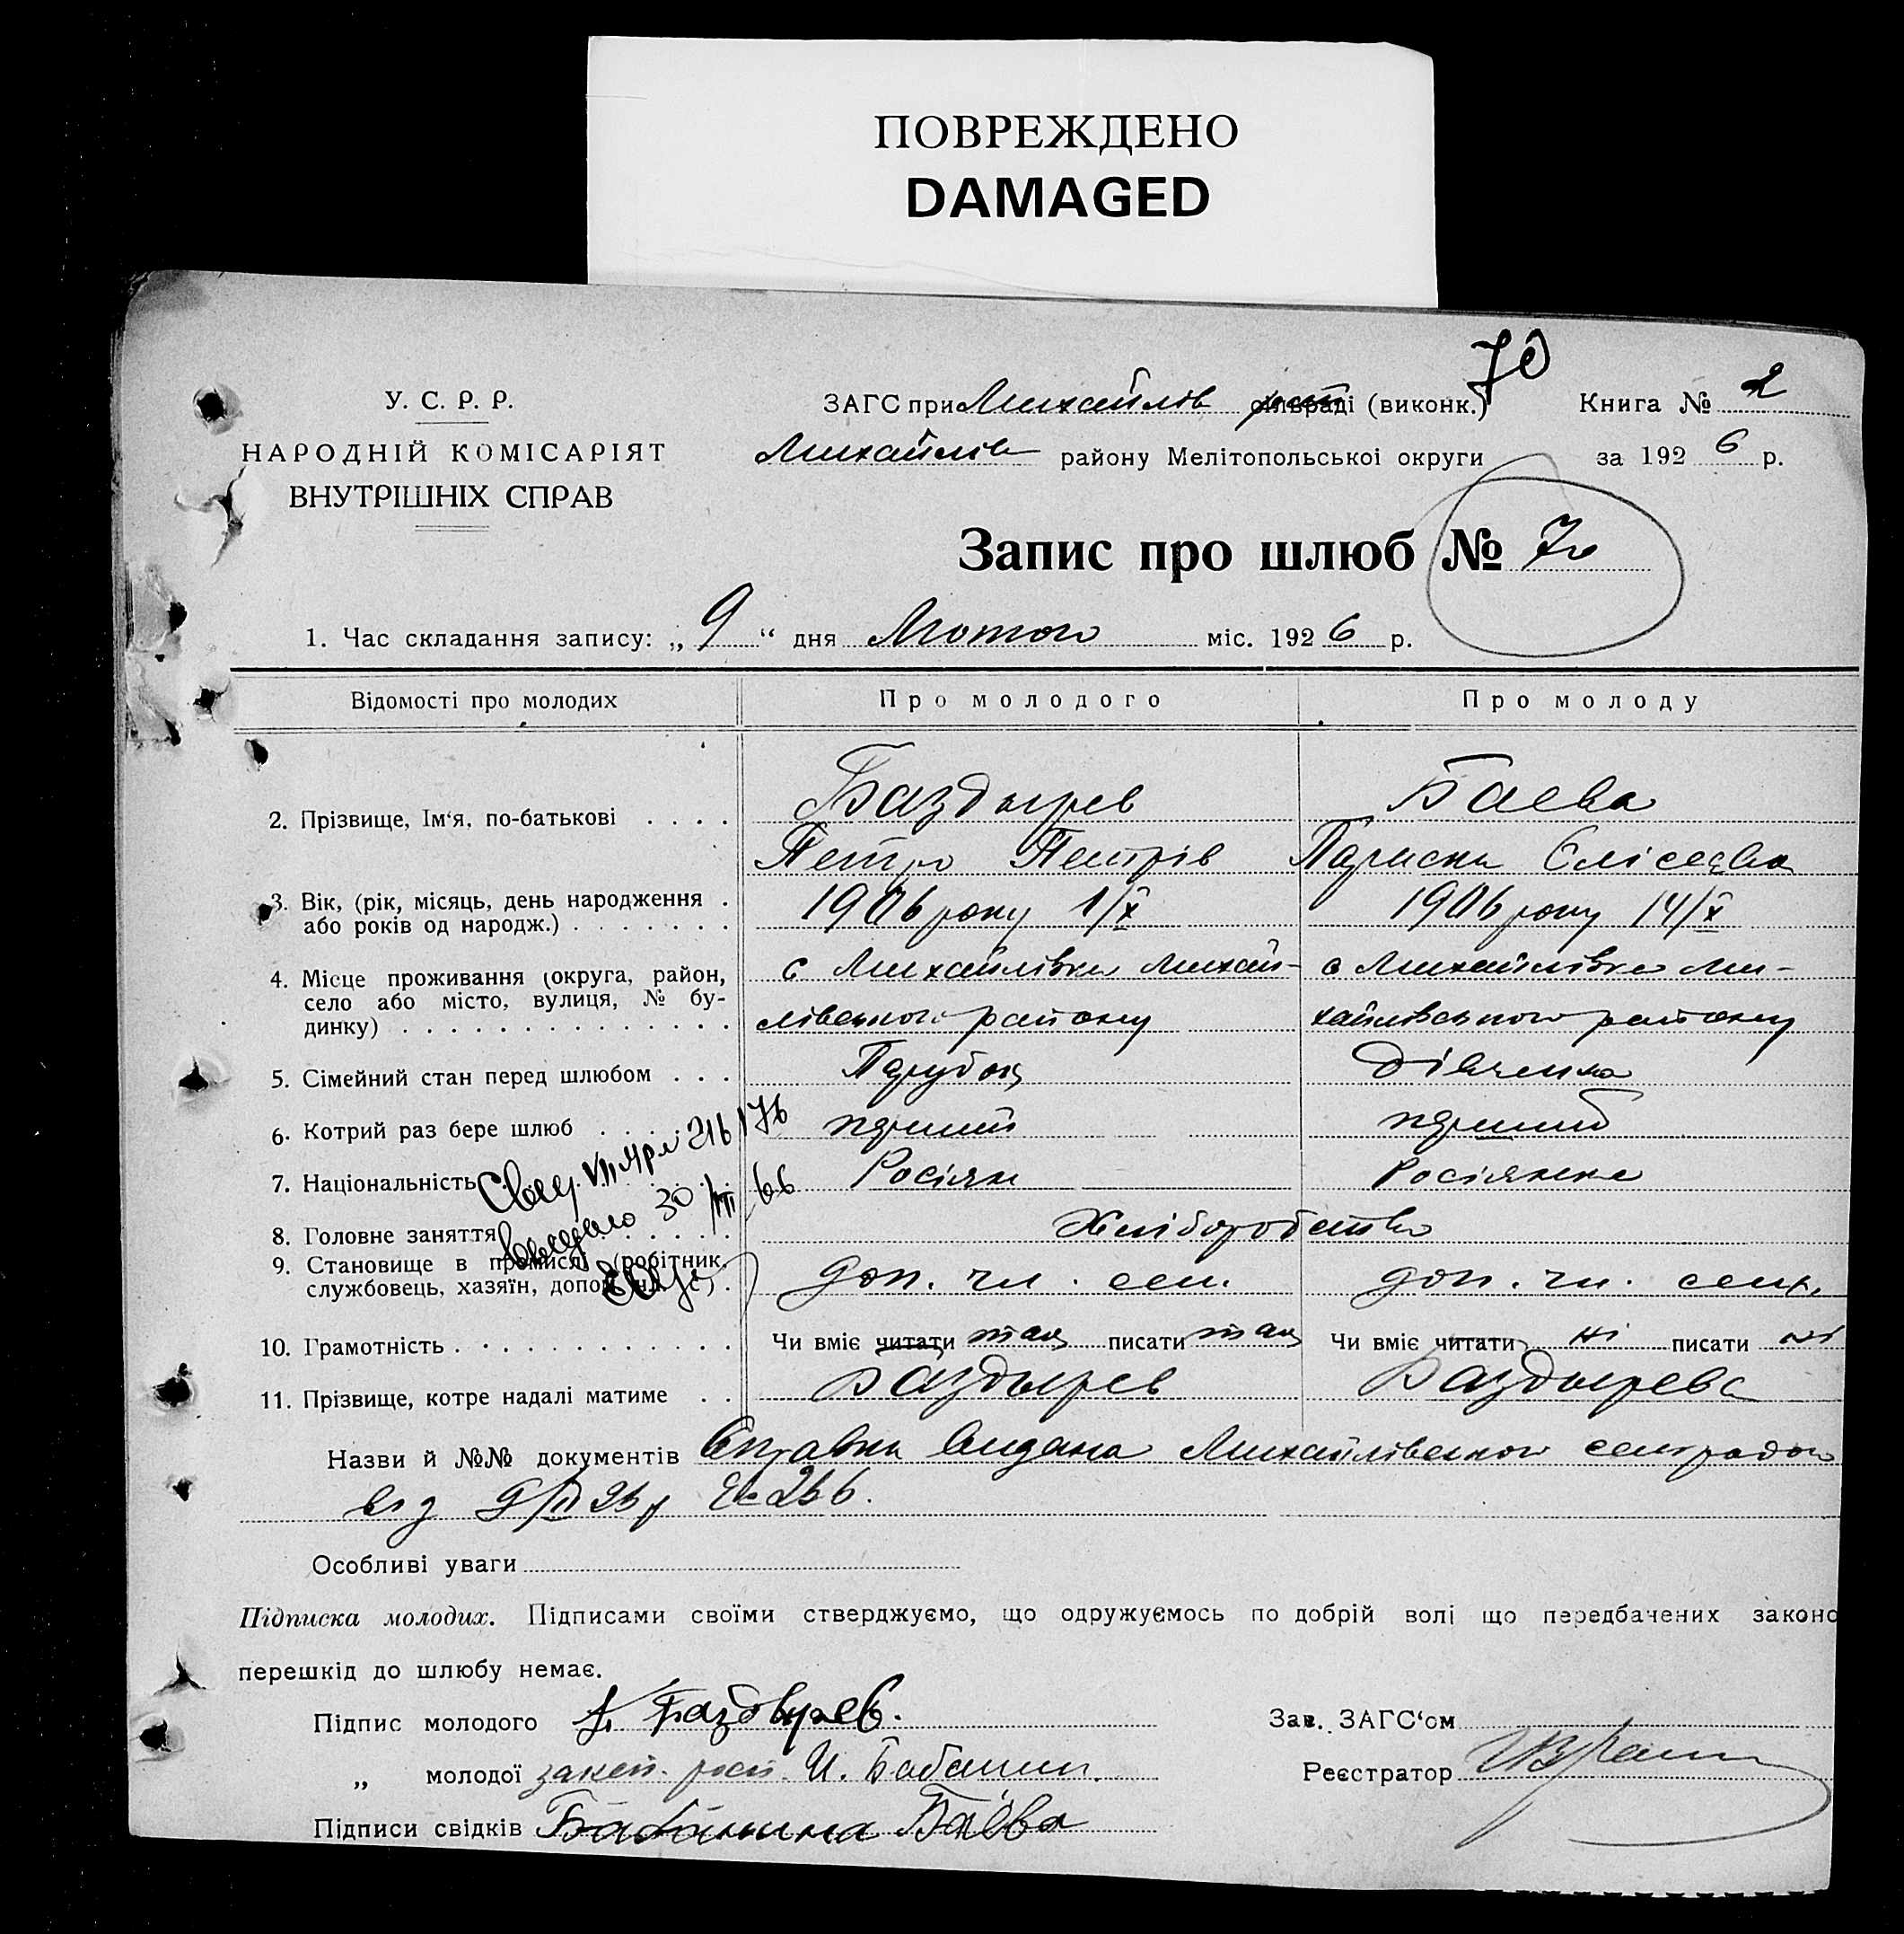 ПОВРЕЖДЕНО
DAMAGED
70
У. С. Р. Р.
НАРОДНІЙ КОМІСАРІЯТ
ВНУТРІШНІХ СПРАВ
ЗАГС при Михайлів сільраді (виконк.)
Михайлів району Мелітопольської округи
Книга № 2
за 1926 р.
Запис про шлюб № 70
1. Час складання запису: „9“ дня Лютого міс. 1926 р.
Відомості про молодих
Про молодого
Про молоду
2. Прізвище, Ім‘я, по-батькові
Баздырев
Петро Петрів
Баева
Параска Єлісеєва
3. Вік, (рік, місяць, день народження
або років од народж.)
1906 року 1/X
1906 року 14/X
4. Місце проживання (округа, район,
село або місто, вулиця, № бу-
динку)
с Михайлівка Михай-
лівського району
с Михайлівка Ми-
хайлівського району
5. Сімейний стан перед шлюбом
Парубок
Дівчина
6. Котрий раз бере шлюб
перший
перший
7. Національність
Росіян
Росіянка
8. Головне заняття
Хліборобство
9. Становище в промислі (робітник,
службовець, хазяїн, допом. чл. с.)
доп. чл. сем.
доп. чл. сем.
10. Грамотність
Чи вміє читати так писати так
Чи вміє читати ні писати ні
11. Прізвище, котре надалі матиме
Баздырев
Баздырева
Назви й №№ документів Справка видана Михайлівською сельрадою
від 266.
Особливі уваги
Підписка молодих. Підписами своїми стверджуємо, що одружуємось по добрій волі що передбачених законо
перешкід до шлюбу немає.
Підпис молодого Баздырев.
„ молодої И. Бабанин.
Підписи свідків Бабанина Баёва
Зав. ЗАГС‘ом
Реєстратор